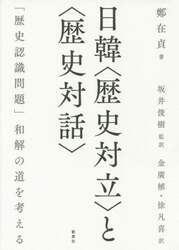 鄭在貞 著
坂井俊樹 監訳
金廣植・徐凡喜 訳
日韓〈歴史対立〉と
〈歴史対話〉
「歴史認識問題」和解の道を考える
新泉社